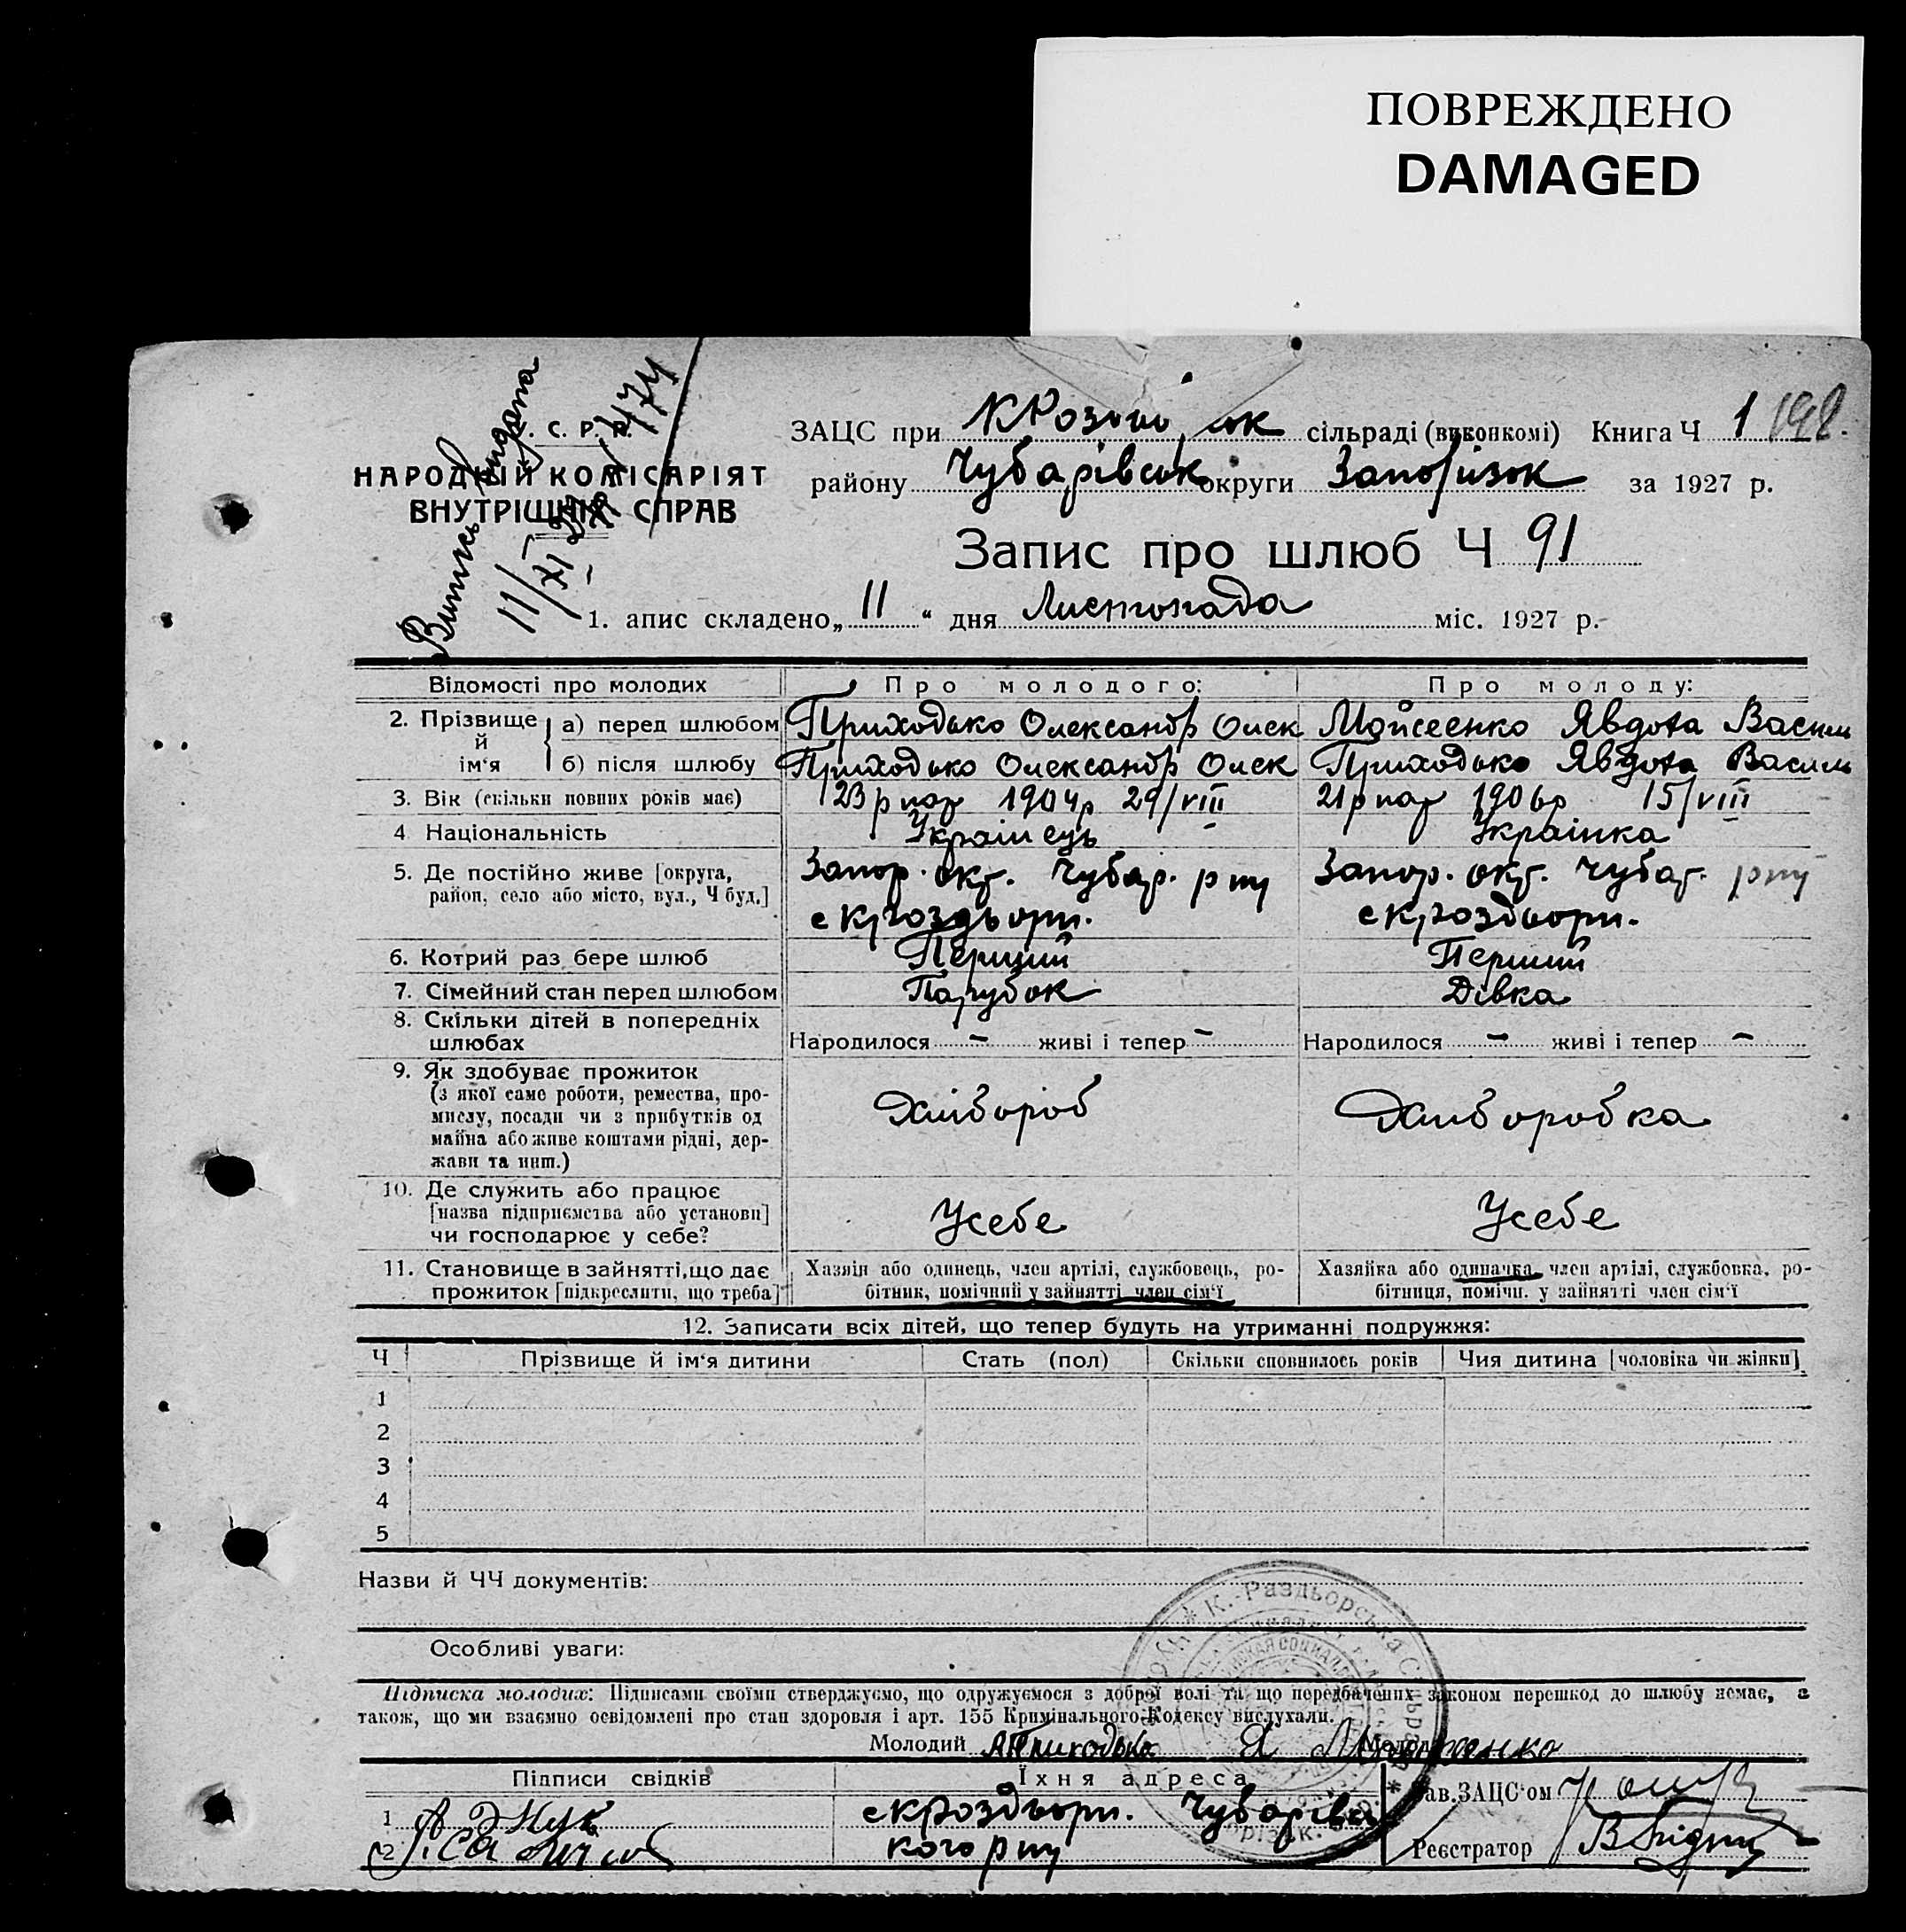 ПОВРЕЖДЕНО
DAMAGED
С. Р. Р.
НАРОДНІЙ КОМІСАРІЯТ
ВНУТРІШНІХ СПРАВ
Випись видана
11/XI 27р
ЗАЦС при сільраді (виконкомі) Книга Ч 1 198
району Чубарівськ округи Запорізьк за 1927 р.
Запис про шлюб Ч 91
1. апис складено „ 11 “ дня Листопада міс. 1927 р.
Відомості про молодих Про молодого: Про молоду:
2. Прізвище й ім‘я а) перед шлюбом Приходько Олександр Олек Мойсеенко Явдоха Василь
б) після шлюбу Приходько Олександр Олек Приходько Явдоха Василь
3. Вік (скільки повних років має) 23р нар 1904р 29/VIII 21р нар 1906р 15/VIII
4 Національність Украінець Украінка
5. Де постійно живе [округа, район, село або місто, вул., Ч буд.] Запор. окр. Чубар. р ну Запор. окр. Чубар. р ну
с Крроздьорн. с Крроздьорн.
6. Котрий раз бере шлюб Перший Перший
7. Сімейний стан перед шлюбом Парубок Дівка
8. Скільки дітей в попередніх шлюбах Народилося – живі і тепер – Народилося – живі і тепер –
9. Як здобуває прожиток
(з якої саме роботи, ремества, про-
мислу, посади чи з прибутків од
майна або живе коштами рідні, дер-
жави та инш.) Хлібороб Хліборобка
10. Де служить або працює
[назва підприємства або установи]
чи господарює у себе? Усебе Усебе
11. Становище в зайнятті, що дає
прожиток [підкреслити, що треба]
Хазяїн або одинець, член артілі, службовець, ро-
бітник, помічний у зайнятті член сім‘ї
Хазяйка або одиначка, член артілі, службовка, ро-
бітниця, помічн. у зайнятті член сім‘ї
12. Записати всіх дітей, що тепер будуть на утриманні подружжя:
Ч Прізвище й ім‘я дитини Стать (пол) Скільки сповнилось років Чия дитина [чоловіка чи жінки]
1
2
3
4
5
Назви й ЧЧ документів:
К.-Раздьорська Сільрада
Особливі уваги:
Підписка молодих: Підписами своїми стверджуємо, що одружуємося з доброї волі та що передбачених законом перешкод до шлюбу немає, а
також, що ми взаємно освідомлені про стан здоровля і арт. 155 Кримінального Кодексу вислухали.
Молодий А Приходько Молода
Підписи свідків Їхня адреса Зав. ЗАЦС‘ом
1 скрроздьорн. Чубарівсь
2 кого р ну Реєстратор